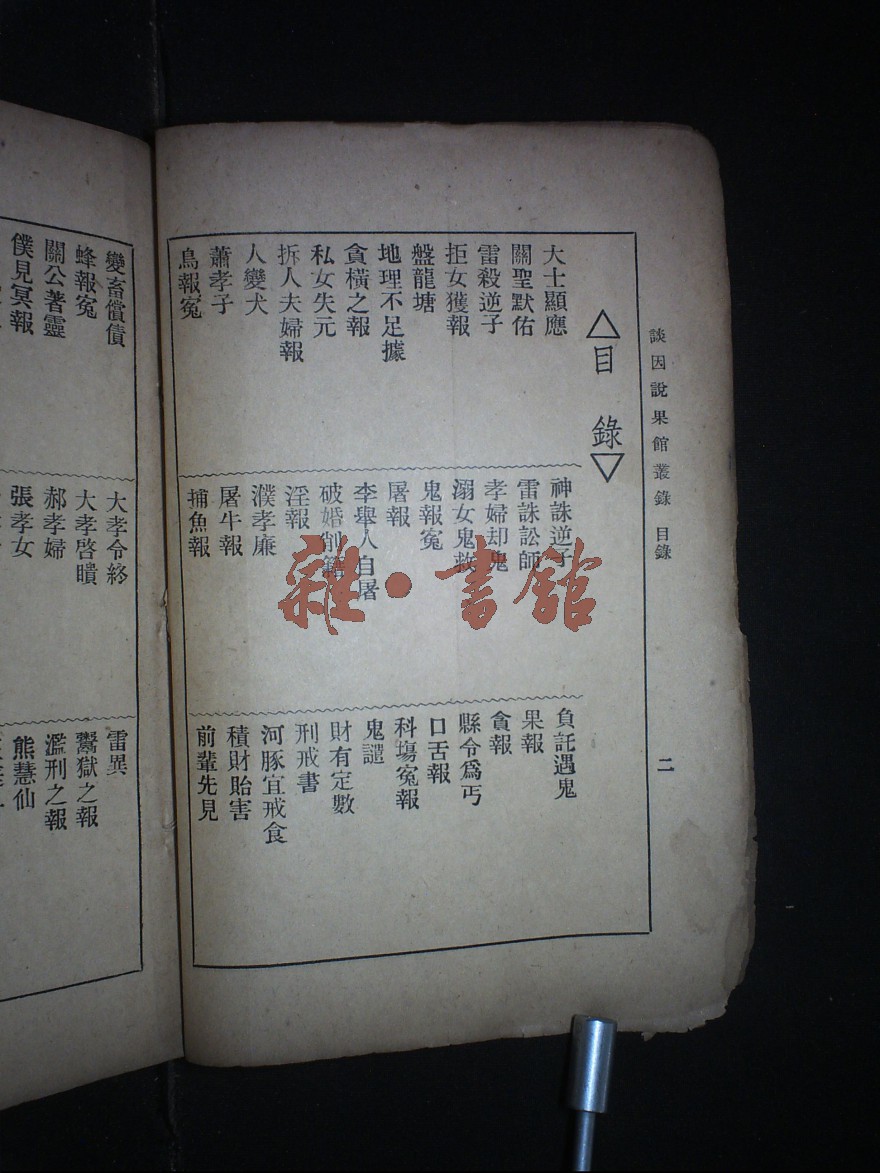 談因說果館叢錄 目錄
二
目 錄
大士顯應
關聖默佑
雷殺逆子
拒女獲報
盤龍塘
地理不足據
貪橫之報
私女失元
拆人夫婦報
人變犬
蕭孝子
鳥報冤
神誅逆子
雷誅訟師
孝婦却鬼
溺女鬼救
鬼報冤
屠報
李舉人自屠
破婚削籍
淫報
濮孝廉
屠牛報
捕魚報
負託遇鬼
果報
貪報
縣令爲丐
口舌報
科塲冤報
鬼譴
財有定數
刑戒書
河豚宜戒食
積財貽害
前輩先見
變畜償債
蜂報冤
關公著靈
僕見冥報
大孝令終
大孝啓瞶
郝孝婦
張孝女
雷異
鬻獄之報
濫刑之報
熊慧仙
雜·書館